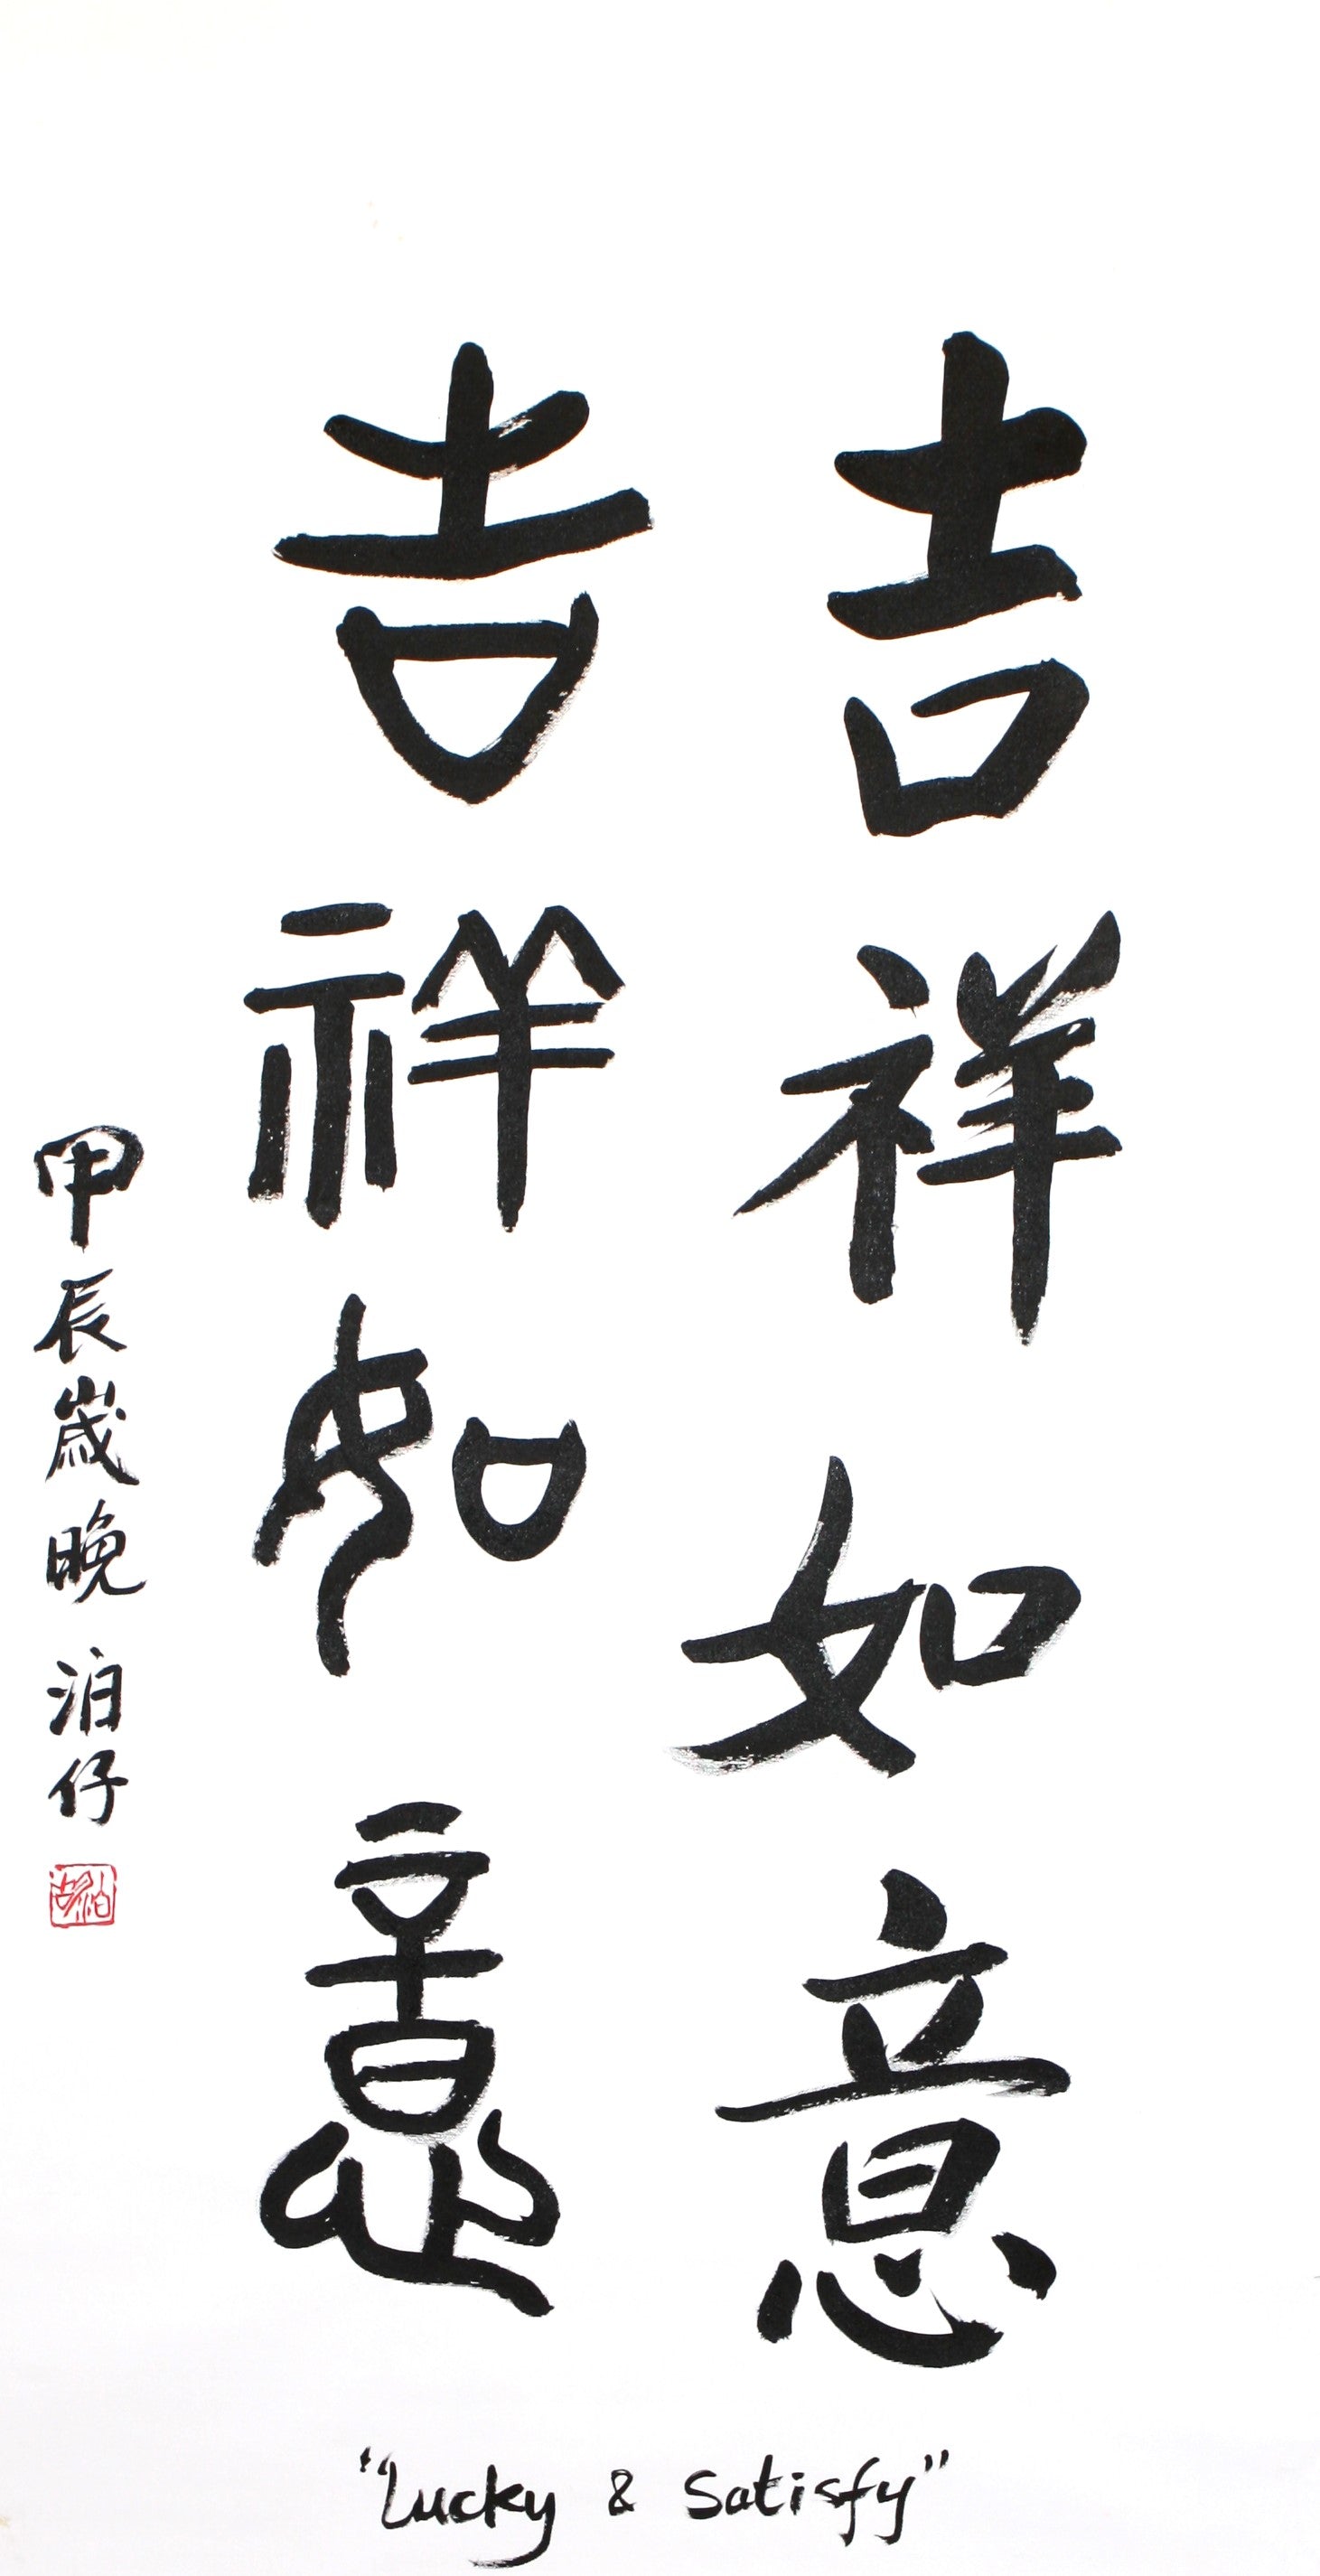 吉祥如意
吉祥如意
甲辰歲晚 泊仔
"Lucky & Satisfy"